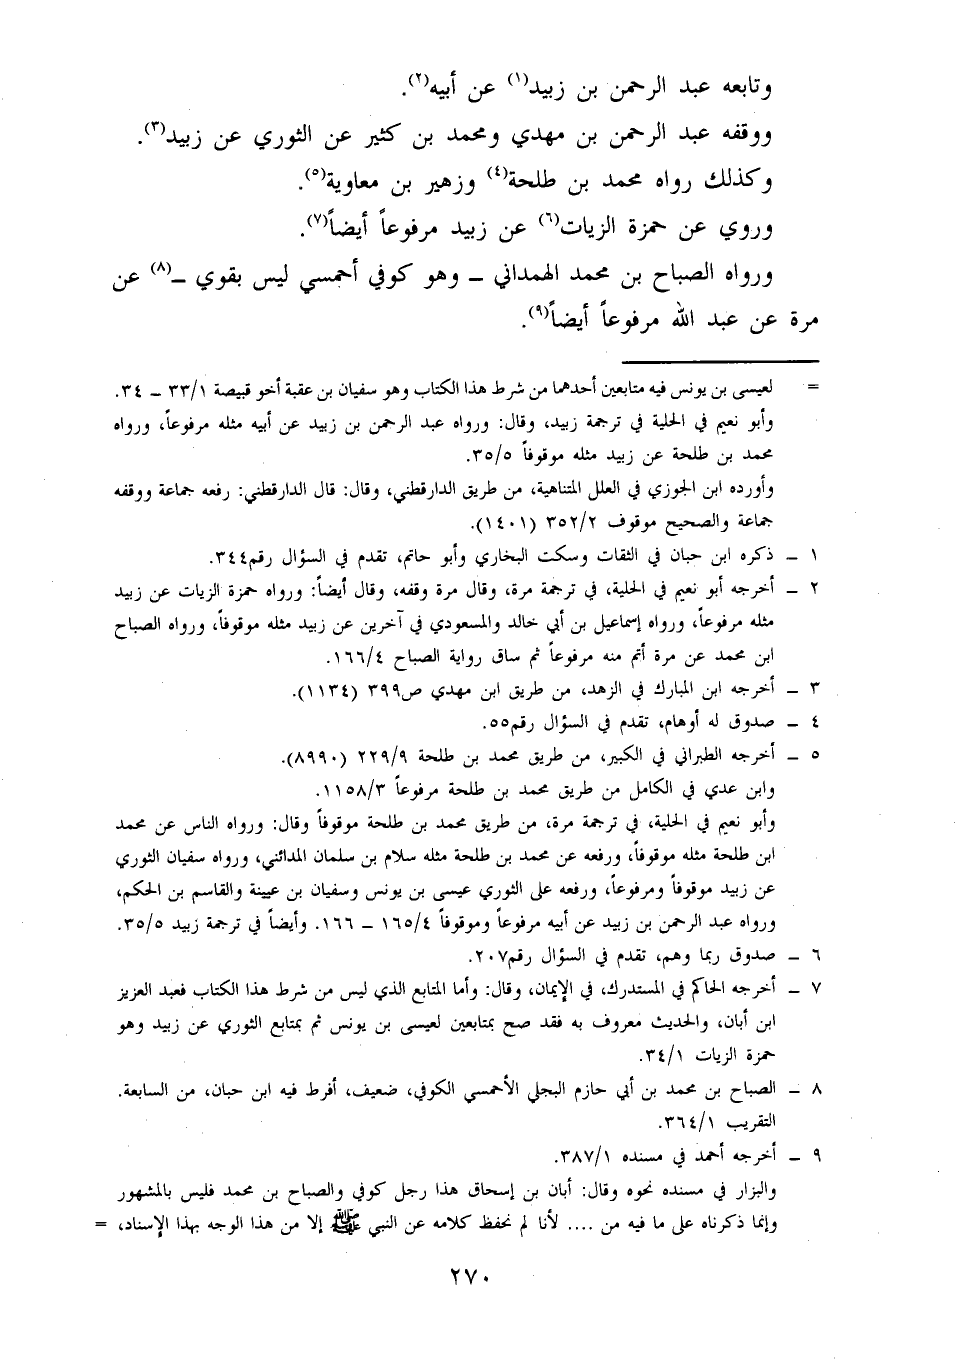 وتابعه عبد الرحمن بن زبيد(١) عن أبيه(٢).
ووقفه عبد الرحمن بن مهدي ومحمد بن كثير عن الثوري عن زبيد(٣).
وكذلك رواه محمد بن طلحة(٤) وزهير بن معاوية(٥).
وروي عن حمزة الزيات(٦) عن زبيد مرفوعاً أيضاً(٧).
ورواه الصباح بن محمد الهمداني ــ وهو كوفي أحمسي ليس بقوي ــ(٨) عن
مرة عن عبد الله مرفوعاً أيضاً(٩).
= لعيسى بن يونس فيه متابعين أحدهما من شرط هذا الكتاب وهو سفيان بن عقبة أخو قبيصة ٣٣/١ ــ ٣٤.
وأبو نعيم في الحلية في ترجمة زبيد، وقال: ورواه عبد الرحمن بن زبيد عن أبيه مثله مرفوعاً، ورواه
محمد بن طلحة عن زبيد مثله موقوفاً ٣٥/٥.
وأورده ابن الجوزي في العلل المتناهية، من طريق الدارقطني، وقال: قال الدارقطني: رفعه جماعة ووقفه
جماعة والصحيح موقوف ٣٥٢/٢ (١٤٠١).
١ ــ ذكره ابن حبان في الثقات وسكت البخاري وأبو حاتم، تقدم في السؤال رقم٣٤٤.
٢ ــ أخرجه أبو نعيم في الحلية، في ترجمة مرة، وقال مرة وقفه، وقال أيضاً: ورواه حمزة الزيات عن زبيد
مثله مرفوعاً، ورواه إسماعيل بن أبي خالد والمسعودي في آخرين عن زبيد مثله موقوفاً، ورواه الصباح
ابن محمد عن مرة أتم منه مرفوعاً ثم ساق رواية الصباح ١٦٦/٤.
٣ ــ أخرجه ابن المبارك في الزهد، من طريق ابن مهدي ص٣٩٩ (١١٣٤).
٤ ــ صدوق له أوهام، تقدم في السؤال رقم٥٥.
٥ ــ أخرجه الطبراني في الكبير، من طريق محمد بن طلحة ٢٢٩/٩ (٨٩٩٠).
وابن عدي في الكامل من طريق محمد بن طلحة مرفوعاً ١١٥٨/٣.
وأبو نعيم في الحلية، في ترجمة مرة، من طريق محمد بن طلحة موقوفاً وقال: ورواه الناس عن محمد
ابن طلحة مثله موقوفاً، ورفعه عن محمد بن طلحة مثله سلام بن سلمان المدائني، ورواه سفيان الثوري
عن زبيد موقوفاً ومرفوعاً، ورفعه على الثوري عيسى بن يونس وسفيان بن عيينة والقاسم بن الحكم،
ورواه عبد الرحمن بن زبيد عن أبيه مرفوعاً وموقوفاً ١٦٥/٤ ــ ١٦٦. وأيضاً في ترجمة زبيد ٣٥/٥.
٦ ــ صدوق ربما وهم، تقدم في السؤال رقم٢٠٧.
٧ ــ أخرجه الحاكم في المستدرك، في الإيمان، وقال: وأما المتابع الذي ليس من شرط هذا الكتاب فعبد العزيز
ابن أبان، والحديث معروف به فقد صح بمتابعين لعيسى بن يونس ثم بمتابع الثوري عن زبيد وهو
حمزة الزيات ٣٤/١.
٨ ــ الصباح بن محمد بن أبي حازم البجلي الأحمسي الكوفي، ضعيف، أفرط فيه ابن حبان، من السابعة.
التقريب ٣٦٤/١.
٩ ــ أخرجه أحمد في مسنده ٣٨٧/١.
والبزار في مسنده نحوه وقال: أبان بن إسحاق هذا رجل كوفي والصباح بن محمد فليس بالمشهور
وإنما ذكرناه على ما فيه من .... لأنا لم نحفظ كلامه عن النبي ﷺ إلا من هذا الوجه بهذا الإسناد، =
٢٧٠